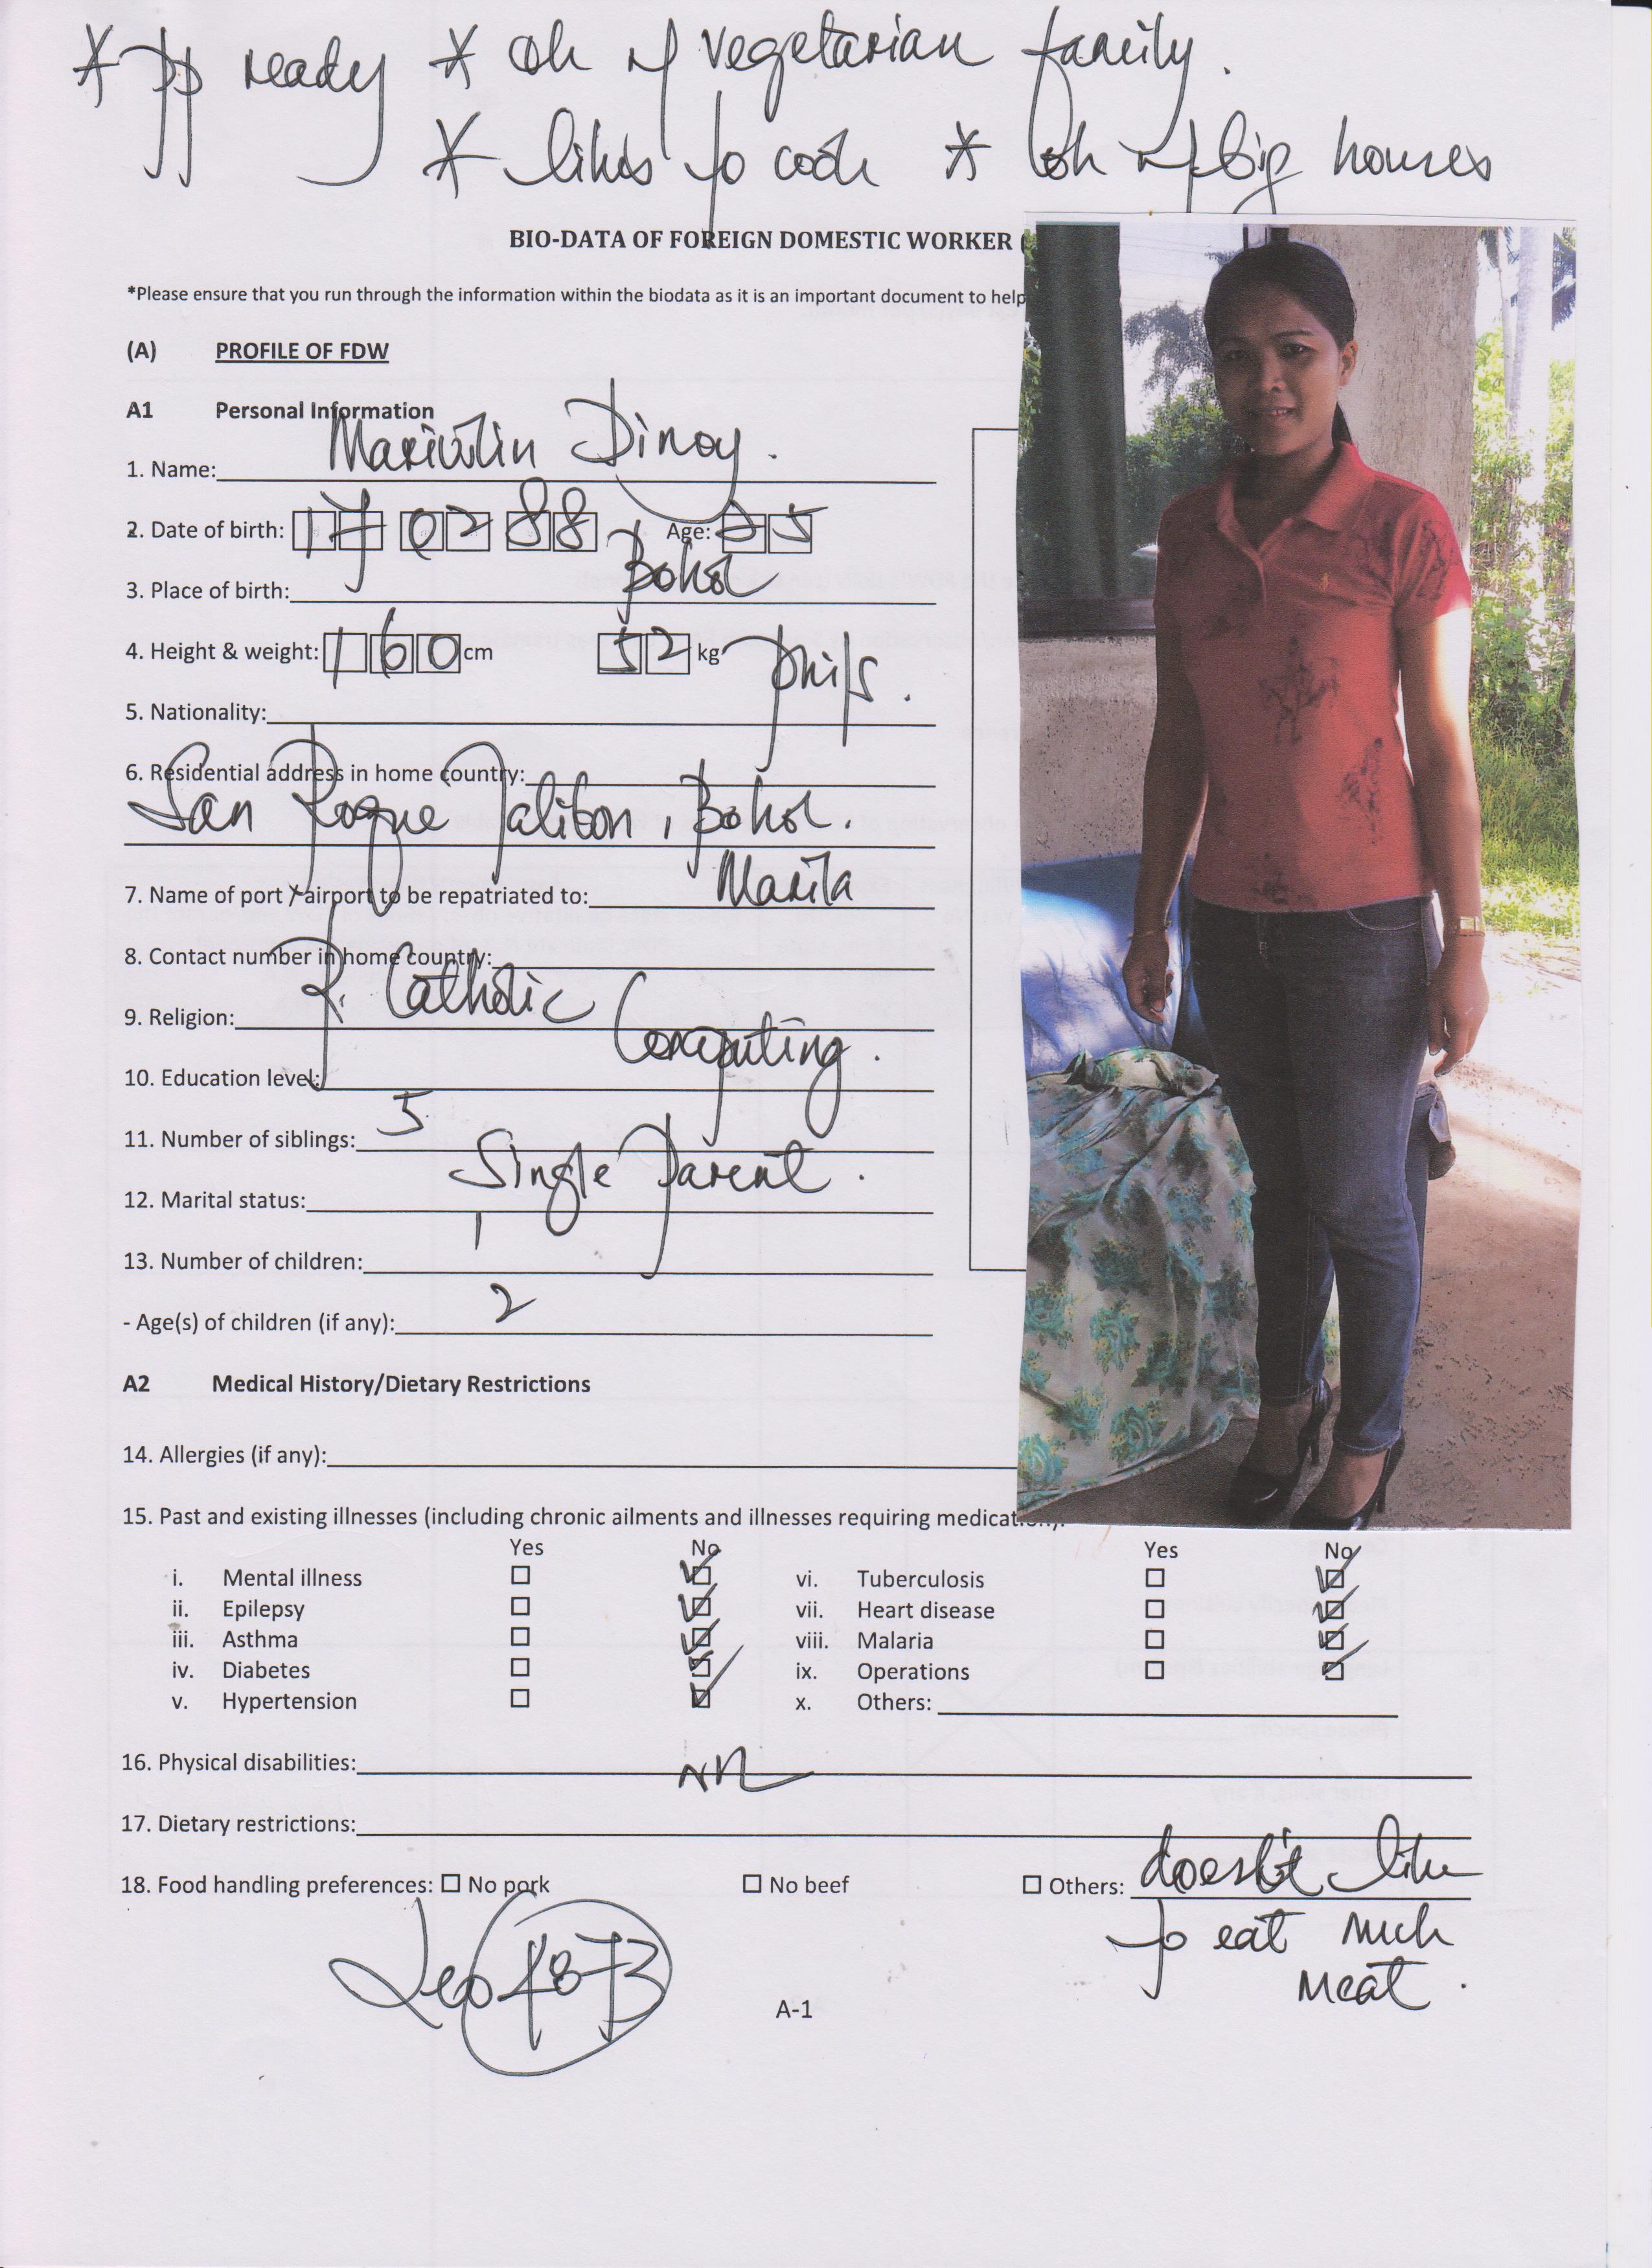 * pp ready * ok w/ vegetarian family.
* likes to cook * ok w/ big houses
BIO-DATA OF FOREIGN DOMESTIC WORKER (
*Please ensure that you run through the information within the biodata as it is an important document to help
(A) PROFILE OF FDW
A1 Personal Information
1. Name: Dinoy.
2. Date of birth: 17 02 88 Age: 25
3. Place of birth: Bohol
4. Height & weight: 160 cm 52 kg
5. Nationality: Phils.
6. Residential address in home country:
San Roque Talibon, Bohol.
7. Name of port / airport to be repatriated to: Manila
8. Contact number in home country:
9. Religion: R. Catholic
10. Education level: Computing.
11. Number of siblings: 5
12. Marital status: Single Parent.
13. Number of children: 1
- Age(s) of children (if any): 2
A2 Medical History/Dietary Restrictions
14. Allergies (if any):
15. Past and existing illnesses (including chronic ailments and illnesses requiring medication):
Yes No Yes No
i. Mental illness vi. Tuberculosis
ii. Epilepsy vii. Heart disease
iii. Asthma viii. Malaria
iv. Diabetes ix. Operations
v. Hypertension x. Others:
16. Physical disabilities:
17. Dietary restrictions:
18. Food handling preferences: No pork No beef Others: doesn't like
to eat much
meat.
4873
A-1